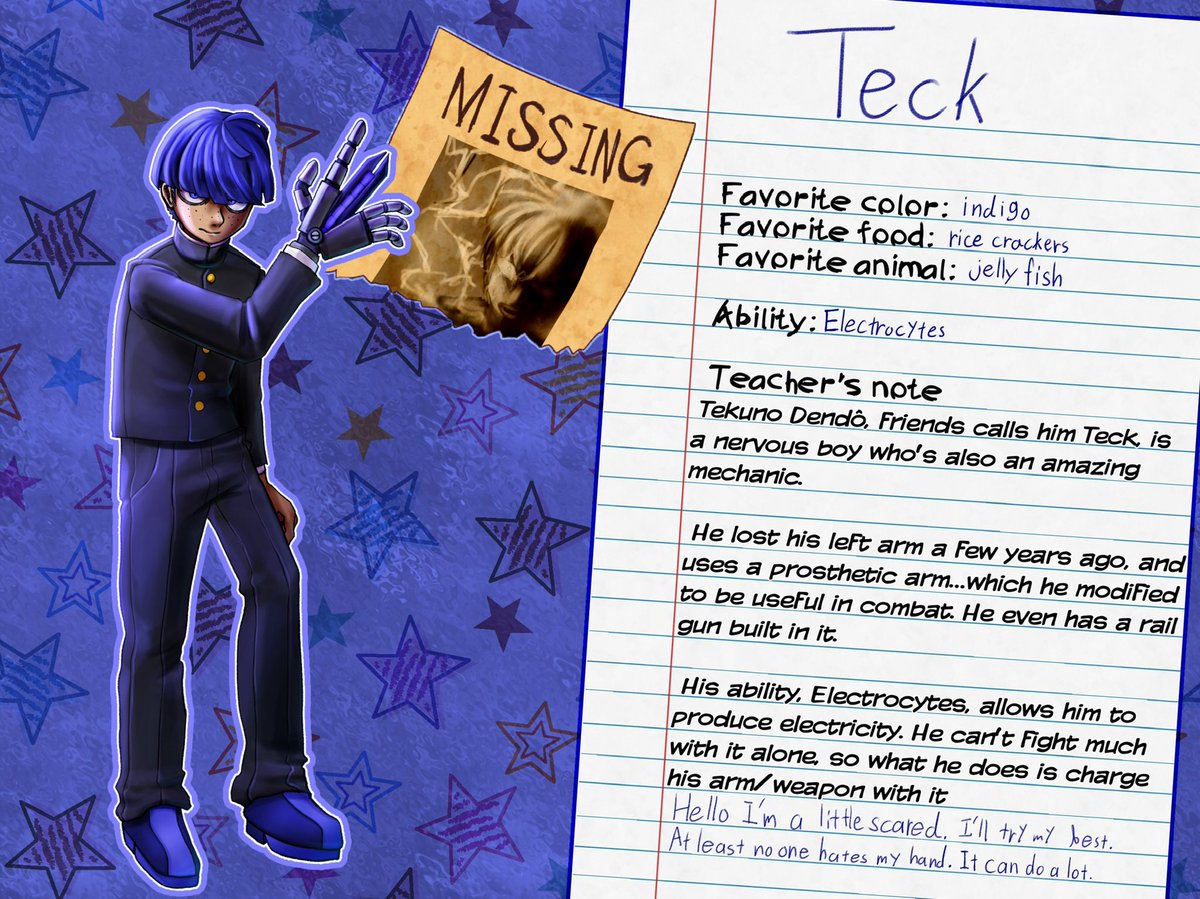 MISSING
Teck
Favorite color: indigo
Favorite food: rice crackers
Favorite animal: jelly fish
Ability: Electrocytes
Teacher's note
Tekuno Dendô, Friends calls him Teck, is
a nervous boy who's also an amazing
mechanic.
He lost his left arm a few years ago, and
uses a prosthetic arm...which he modified
to be useful in combat. He even has a rail
gun built in it.
His ability, Electrocytes, allows him to
produce electricity. He can't fight much
with it alone, so what he does is charge
his arm/weapon with it
Hello I'm a little scared. I'll try my best.
At least no one hates my hand. It can do a lot.